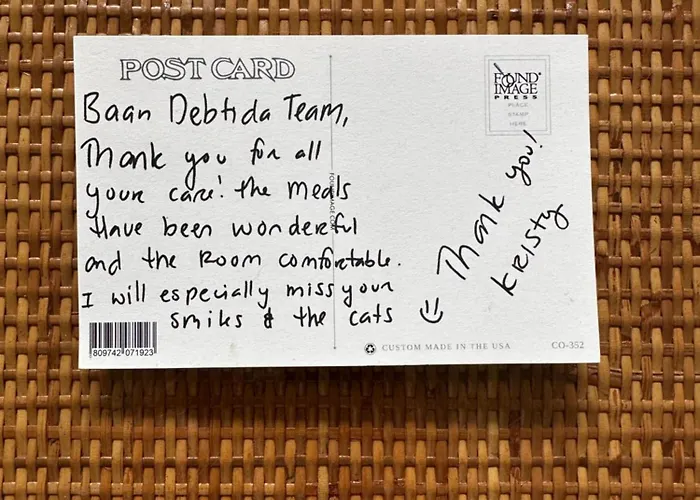 POST CARD
Baan Debtida Team,
Thank you for all
your care! the meals
Have been wonderful
and the Room comfortable.
I will especially miss your
smiles & the cats
Thank you!
Kristy
FOUND IMAGE CO.
FOUND
IMAGE
PRESS
PLACE
STAMP
HERE
809742 071923
CUSTOM MADE IN THE USA
CO-352